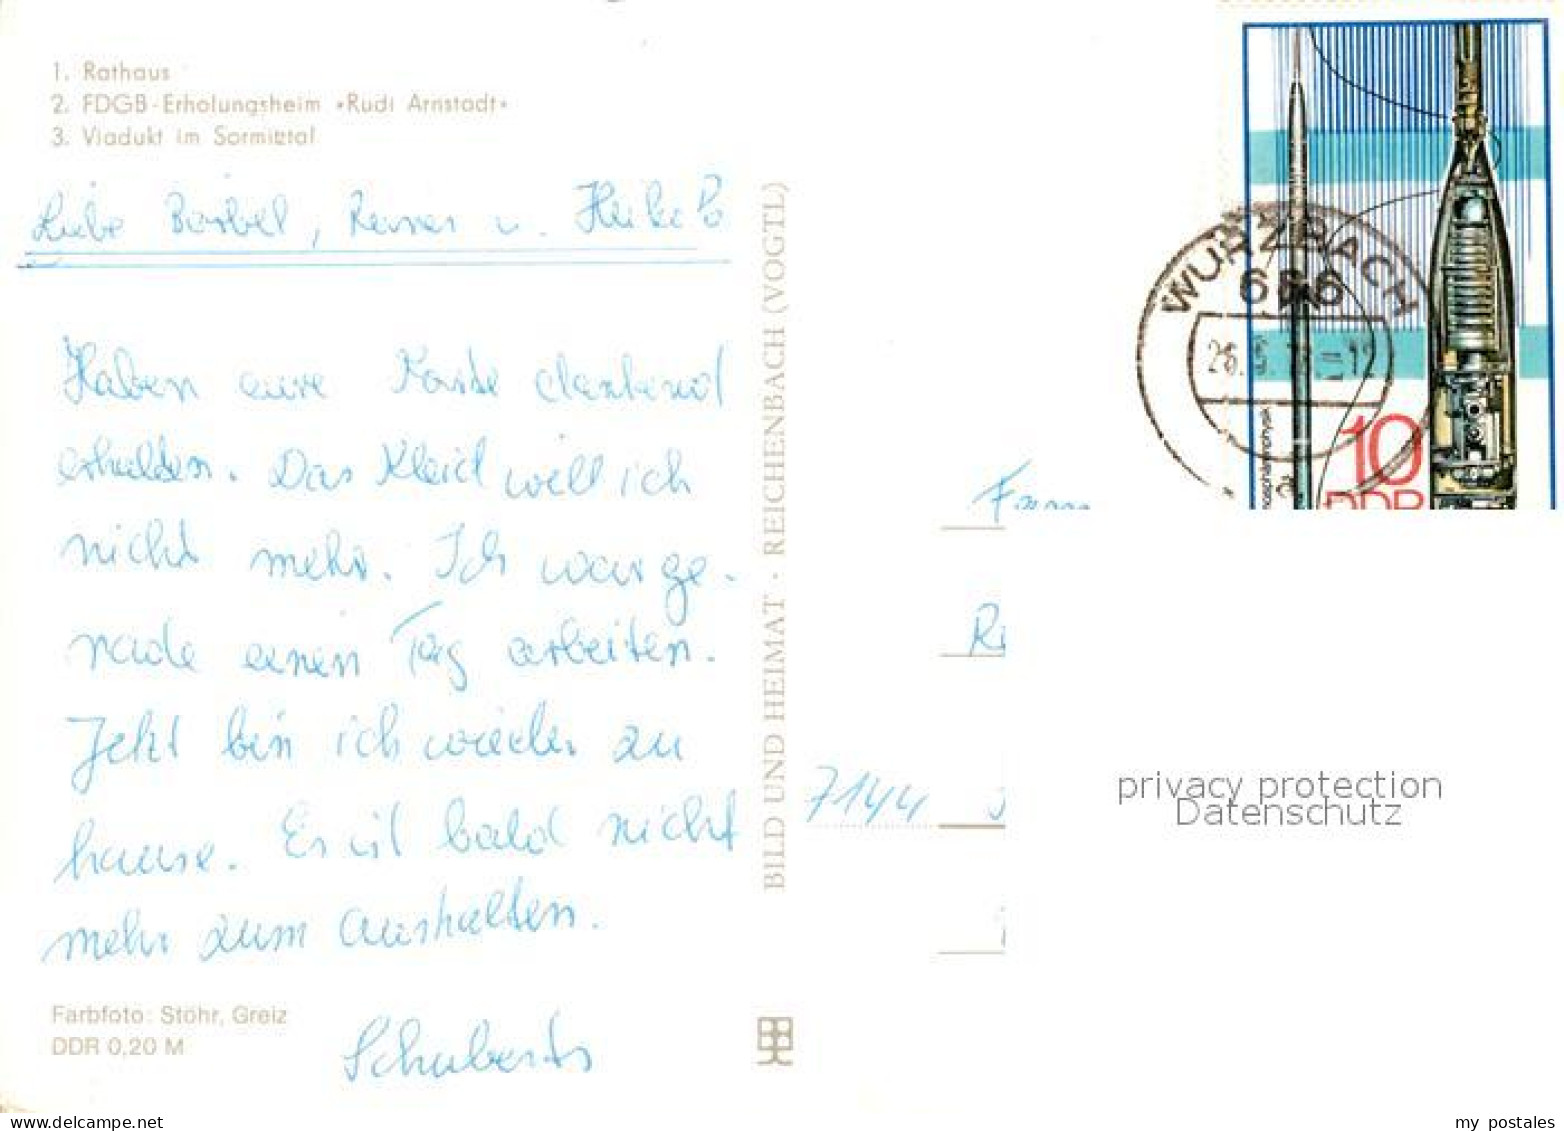 1. Rathaus
2. FDGB-Erholungsheim »Rudi Arnstadt«
3. Viadukt im Sormitztal
Liebe Bärbel, Reiner u. Heike!
Haben eure Karte dankend
erhalten. Das Kleid will ich
nicht mehr. Ich war ge-
rade einen Tag arbeiten.
Jetzt bin ich wieder zu
hause. Es ist bald nicht
mehr zum aushalten.
Schuberts
Farbfoto: Stöhr, Greiz
DDR 0,20 M
BILD UND HEIMAT · REICHENBACH (VOGTL)
WURZBACH
10
DDR
Fam
7144
privacy protection
Datenschutz
my postales